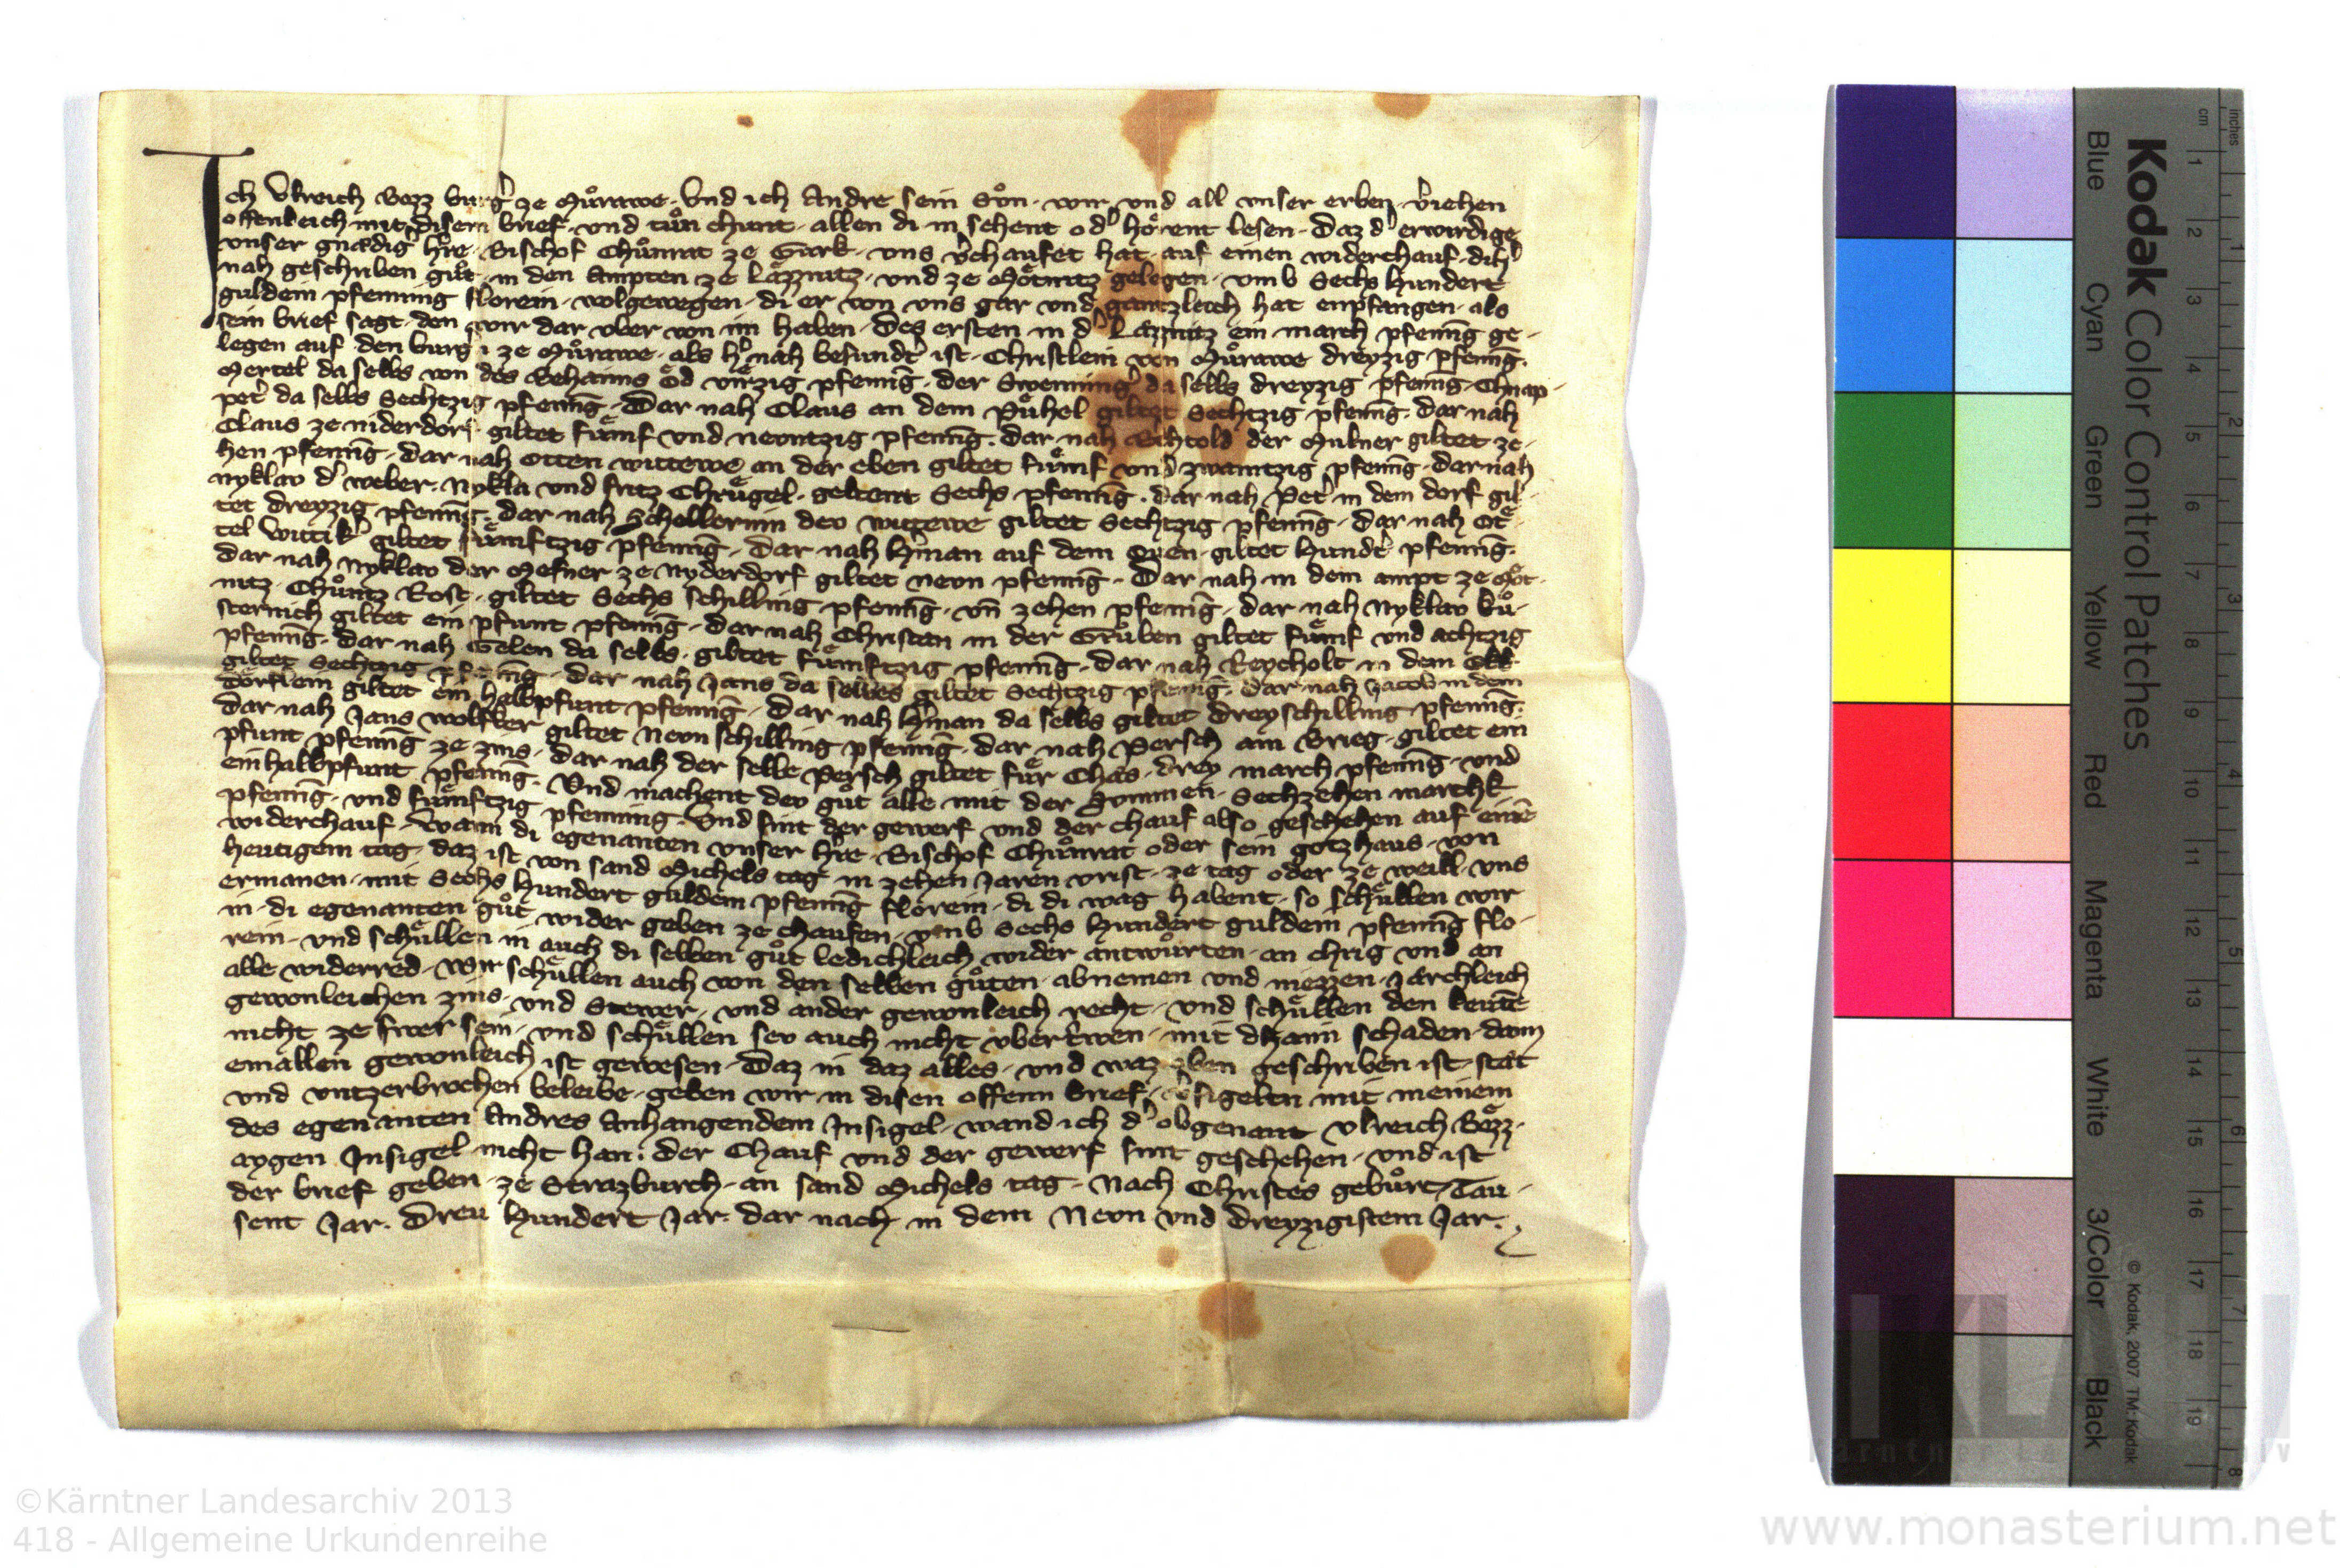 Ich Vlreich Bozz burg̛ ze Můrawe. Vnd ich Andre sein Sůn. wir vnd all vnser erben. v̛iehen
offenleich mit disem brief. vnd tůn chunt. allen di in sehent od̛ hőrent lesen. Daz d̛ erwirdige
vnser gnædig h̛re. Bischof Chůnrat ze Gurk. vns v̛chaufet hat. auf einen widerchauf. di h̛
nah geschriben gůt. in den Ampten ze Lazznitz. vnd ze Mőtnitz gelegen. vmb Sechs hundert
guldein pfenning florein. wolgewegen. di er von vns gar vnd gantzleich hat enpfangen. als
sein brief sagt. den wir dar vber von im haben. Des ersten in d̛ Lazznitz ein march pfenīg ge-
legen auf den burg̛ ze Můrawe. als h̛ nah besund̛t ist. Christlein von Můrawe dreyzig pfenīg.
Mertel da selbs von des Behaims Őd vierzig pfenīg. der Swenning̛ da selbs dreyzig pfenīg. Chnap-
pet̛ da selbs Sechtzig pfenīg. Dar nah Claus an dem Pűhel giltet Sechtzig pfenīg. dar nah
Claus ze niderdorf giltet Fűmf vnd nevntzig pfenīg. dar nah B̛chtold der Mulner giltet ze-
hen pfenīg. dar nah Otten wittewe an der eben giltet Fűmf vnd zwaintzig pfenīg. dar nah
Nyklav d̛ weber. Nykla vnd Fritz Chrűgel. geltent Sechs pfenīg. dar nah Pet̛ in dem dorf gil-
tet dreyzig pfenīg. dar nah Schellerinn dev wittewe giltet Sechtzig pfenīg. dar nah Ot-
tel Wittik̛ giltet Fűmftzig pfenīg. Dar nah H̛man auf dem Oven. giltet hund̛t pfenīg.
dar nah Nyklav der Mesner ze Nyderdorf giltet nevn pfenīg. Dar nah in dem ampt ze Mőt-
nitz. Chůntz Rost. giltet Sechs schilling pfenīg. vn̄ zehen pfenīg. dar nah Nyklav Ků-
sternich giltet ein pfunt pfenīg. dar nah Christan in der Grůben giltet Fűmf vnd achtzig
pfenīg. dar nah Gelen da selbs. giltet Fűmftzig pfenīg. dar nah Reycholt in dem
giltet Sechtzig pfenīg. dar nah Jans da selbes giltet Sechtzig pfenīg. dar nah Jacob in dem
dőrflein giltet ein halbpfunt pfenīg. Dar nah H̛man da selbs giltet drey schilling pfenīg.
dar nah Jans giltet nevn schilling pfenīg. dar nah Persch am Brieg. giltet ein
pfunt pfenīg ze zins. dar nah der selbe Persch giltet fűr Chäs. drey march pfenīg. vnd
ein halbpfunt pfenīg. Vnd machent dev gůt alle mit der Summen. Sechzehen marchk
pfenīg. vnd Fűmftzig pfenning. Vnd sint der gewerf vnd der chauf also geschehen auf einē
widerchauf. Wann di egenanten vnser h̛re. Bischof Chůnrat oder sein gotzhaus. von
heutigem tag. daz ist von sand Michels tag in zehen jaren vrist. ze tag oder ze weill. vns
ermanen. mit Sechs hundert guldein pfenīg florein. di di wag habent. so schűllen wir
in. di egenanten gůt wider geben ze chaufen. vmb Sechs hundert guldein pfenīg flo-
rein. vnd schűllen in auch di selben gůt ledichleich wider antwűrten. an chrig vnd an
alle widerred. Wir schűllen auch von den selben gůten. abnemen vnd niezzen. jærchleich
gewonleichen zins. vnd Stewer. vnd ander gewonleich recht. vnd schűllen den leutē
nicht ze swer sein. vnd schűllen sev auch nicht vbertwen. mit dhain schaden. dann
gewonleich ist gewesen. Daz in daz alles. vnd waz oben geschriben ist. stät
vnd vntzerbrochen beleibe. geben wir in disen offenn brief. v̛sigelten mit meinem
des egenanten Andres Anhangendem Insigel. wand ich d̛ obgenant Vlreich Bozz.
aygen Insigel nicht han. der Chauf vnd der gewerf sint geschehen. vnd ist
der brief geben. ze Strazburch. an sand Michels tag. Nach Christes gebůrt. Tau-
sent Jar. Dreu hundert Jar. dar nach in dem Nevn vnd dreyzigistem Jar.
Kodak Color Control Patches
Blue Cyan Green Yellow Red Magenta White 3/Color Black
© Kodak, 2007 TM: Kodak
cm 1 2 3 4 5 6 7 8 9 10 11 12 13 14 15 16 17 18 19
inches 1 2 3 4 5 6 7 8
KLA
Kärntner Landesarchiv
©Kärntner Landesarchiv 2013
418 - Allgemeine Urkundenreihe
www.monasterium.net